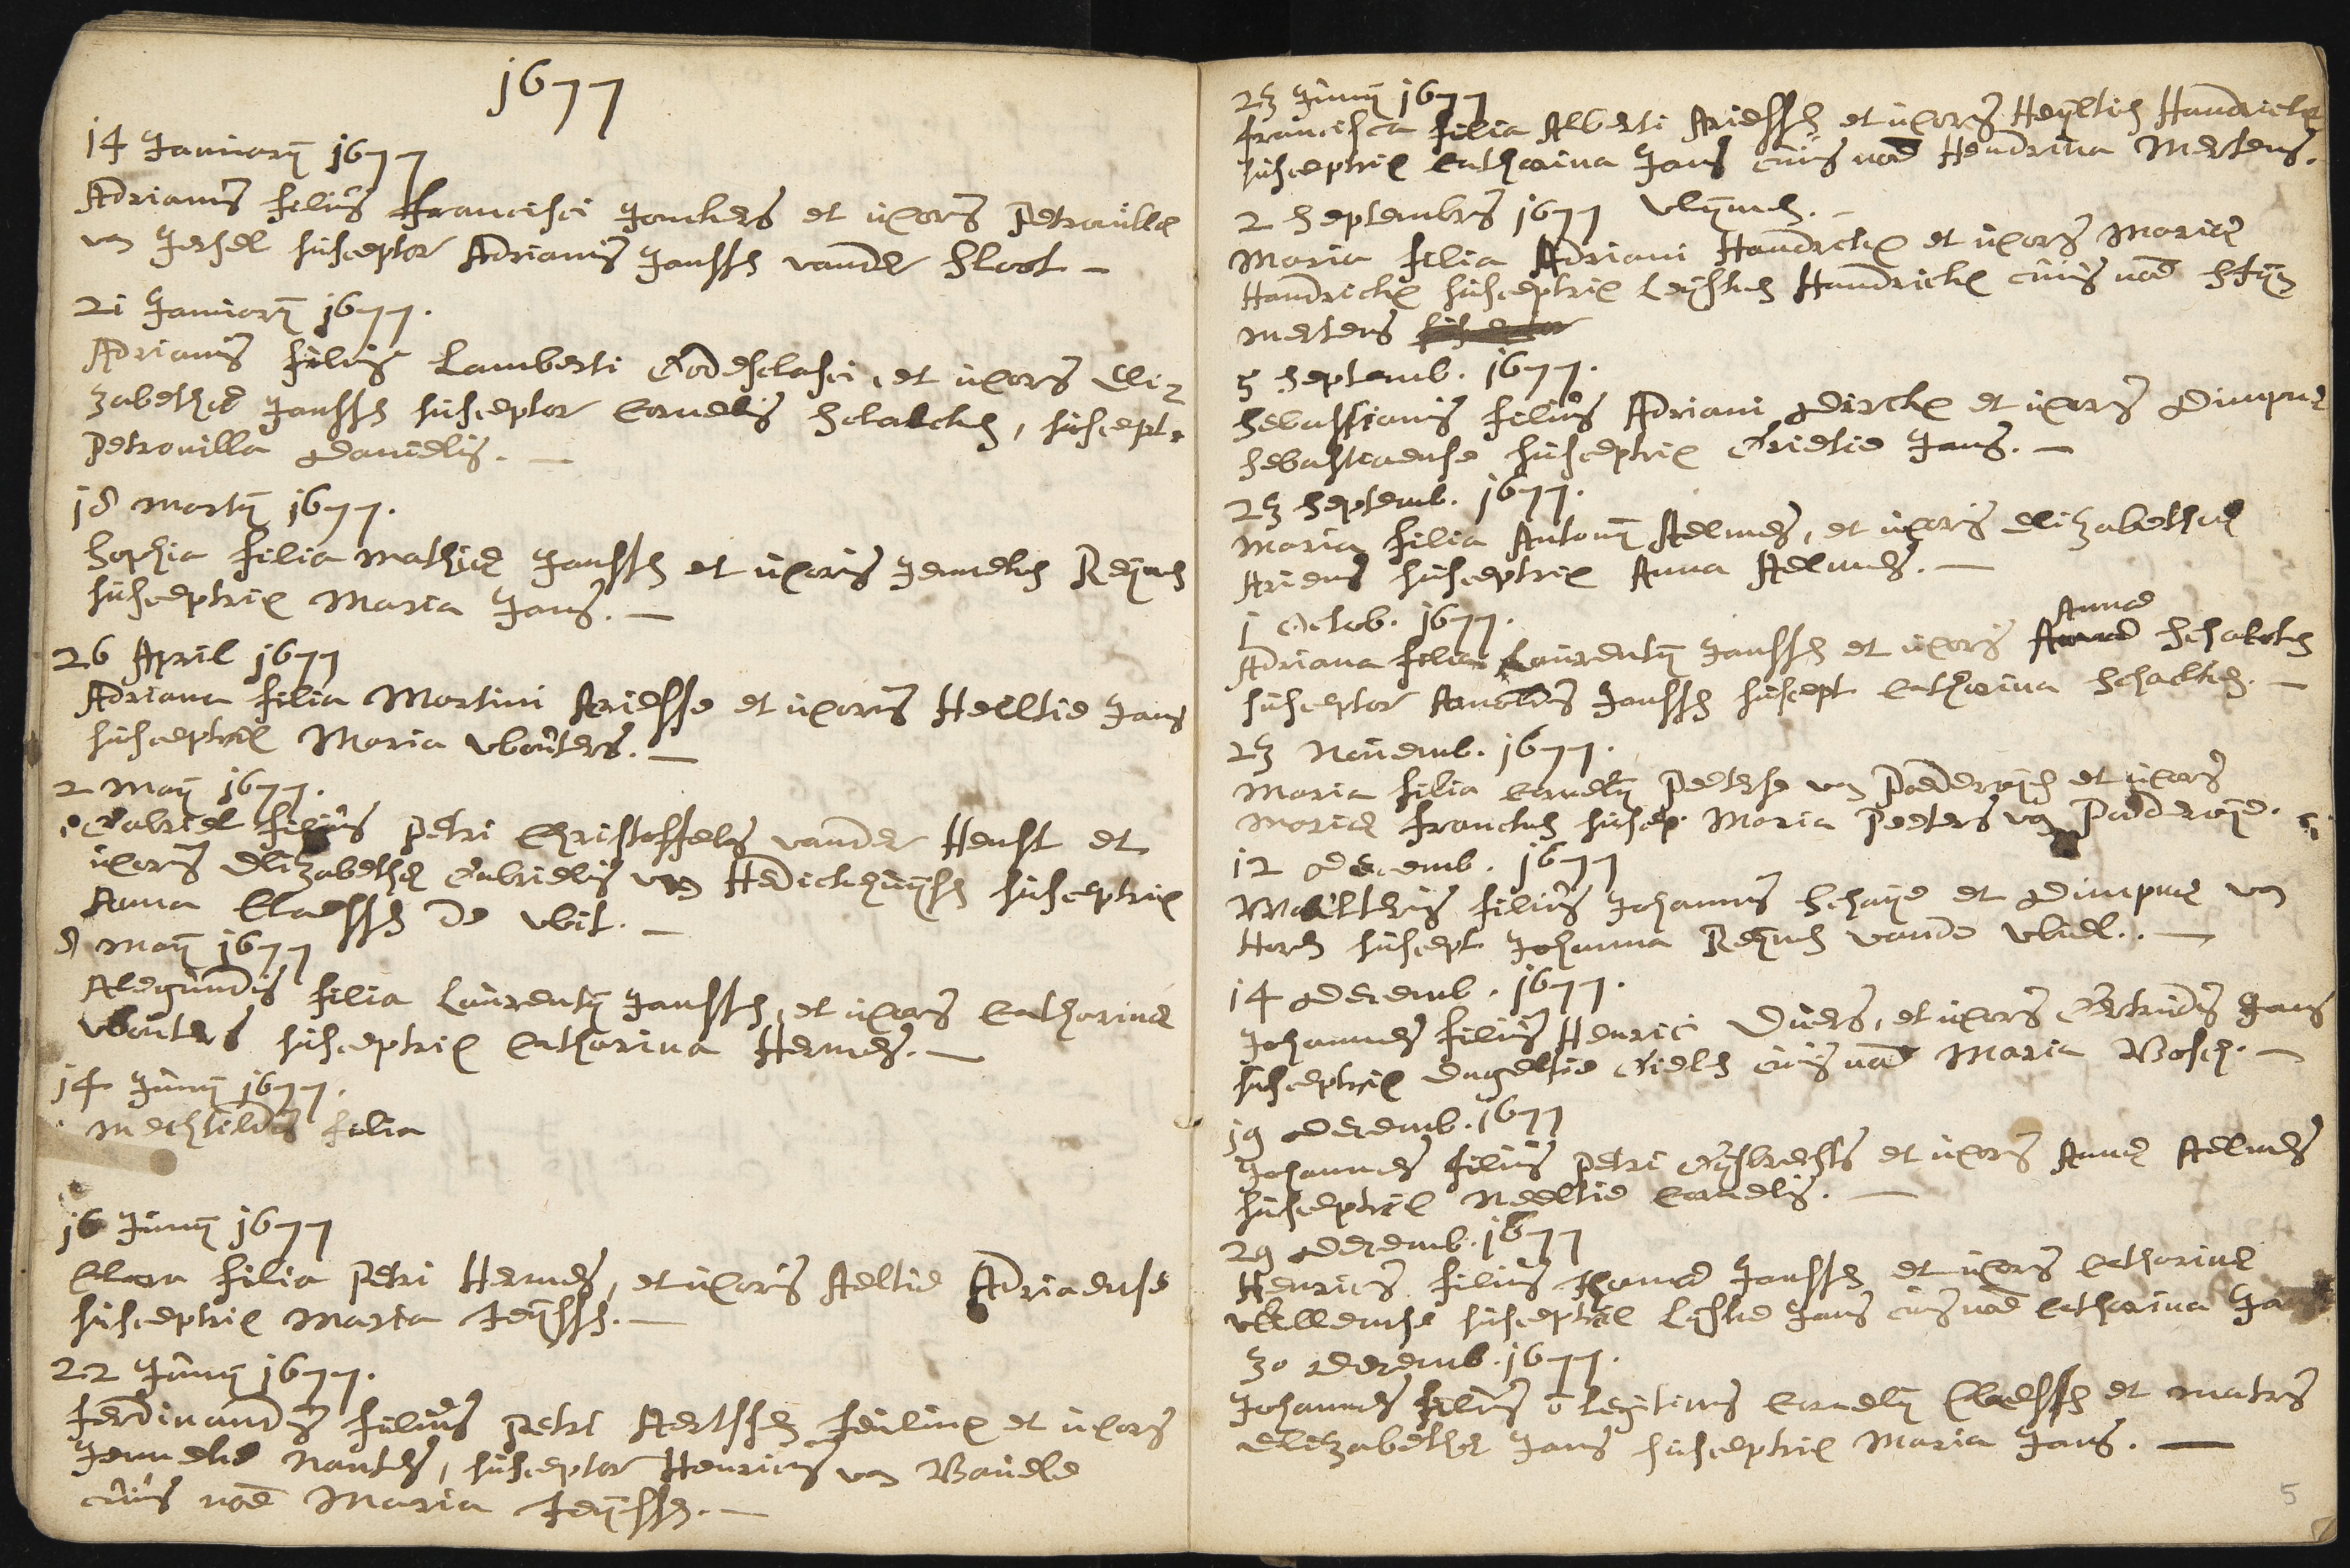 1677
14 Januarij 1677
Adrianus filius Francisci Jonckers et uxoris Petronillæ
van Gersel susceptor Adrianus Janssen vander Sloot
21 Januarij 1677.
Adrianus filius Lamberti Godesclasci, et uxoris Eli-
zabethæ Janssen susceptor Cornelis Schalcken, suscept.
Petronilla Danielis.
18 Martij 1677.
Sophia filia Mathiæ Janssen et uxoris Jenneken Reijnen
susceptrix Maria Jans.
26 April 1677
Adriana filia Martini Ariesse et uxoris Heiltie Jans
susceptrix Maria Wouters.
2 Maij 1677.
Gabriel filius Petri Christoffels vander Henst et
uxoris Elizabethæ Gabrielis van susceptrix
Anna Claessen de Wit.
8 Maij 1677
Alegundis filia Laurentij Janssen, et uxoris Catharinæ
Wouters susceptrix Catharina Hermes.
14 Junij 1677.
Mechtildis filia
16 Junij 1677
Clara filia Petri Hermes, et uxoris Aeltie Adriaense
susceptrix Maria Teijssen.
22 Junij 1677.
Ferdinandus filius Petri Aertssen Teulinx et uxoris
Jenneke Nantes, susceptor Henricus van Bauele
cuius noē Maria Teijssen.
23 Junij 1677
Francisca filia Alberti Ariessen et uxoris Heijltien Handricks
susceptrix Catharina Jans cuius noē Hendrina Mertens.
2 Septembris 1677 Vlijmen.
Maria filia Adriani Handrickx et uxoris Mariæ
Handrickx susceptrix Leijsken Handrickx cuius noē Stijn
Mertens
5 Septemb. 1677.
Sebastianus filius Adriani Dirckx et uxoris Dimpnæ
Sebastiaense susceptrix Grietie Jans.
23 Septemb. 1677.
Maria filia Antonij Aelmes, et uxoris Elizabethæ
Ariens susceptrix Anna Aelmes.
1 Octob. 1677.
Annæ
Adriana filia Laurentij Janssen et uxoris Annæ Schalcken
susceptor Arnoldus Janssen suscept Catharina Schalcken.
23 Nouemb. 1677.
Maria filia Cornelij Peeterse van Poederoijen et uxoris
Mariæ Francken suscep. Maria Peeters van Poederoije.
12 Decemb. 1677
Walterus filius Johannis Schaije et Dimpnæ van
Horen suscept Johanna Reijnen vande Wiel.
14 Decemb. 1677.
Johannes filius Henrici Duers, et uxoris Gertrudis Jans
susceptrix Engeltie Gielen cuius noē Maria Bosch.
19 Decemb. 1677
Johannes filius Petri Gijsbrechts et uxoris Annæ Aelmes
susceptrix Neeltie Cornelis.
29 Decemb. 1677
Henricus filius Thomæ Janssen et uxoris Catharinæ
Willemse susceptrix Lijske Jans cuius noē Catharina Ja
30 Decemb. 1677.
Johannes filius ō legitimus Cornelij Claessen et matris
Elizabethæ Jans susceptrix Maria Jans.
5